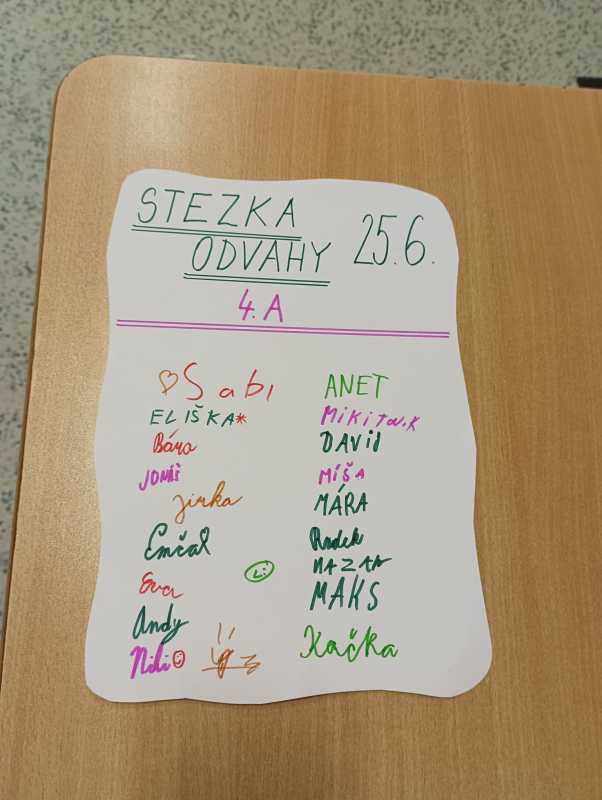 STEZKA
ODVAHY 25.6.
4.A
Sabi
ELIŠKA*
Bára
JONÁŠ
Jirka
Emčal
Eva
Andy
Niki
ANET
DAVID
MÍŠA
MÁRA
Radek
NAZAR
MAKS
Kačka